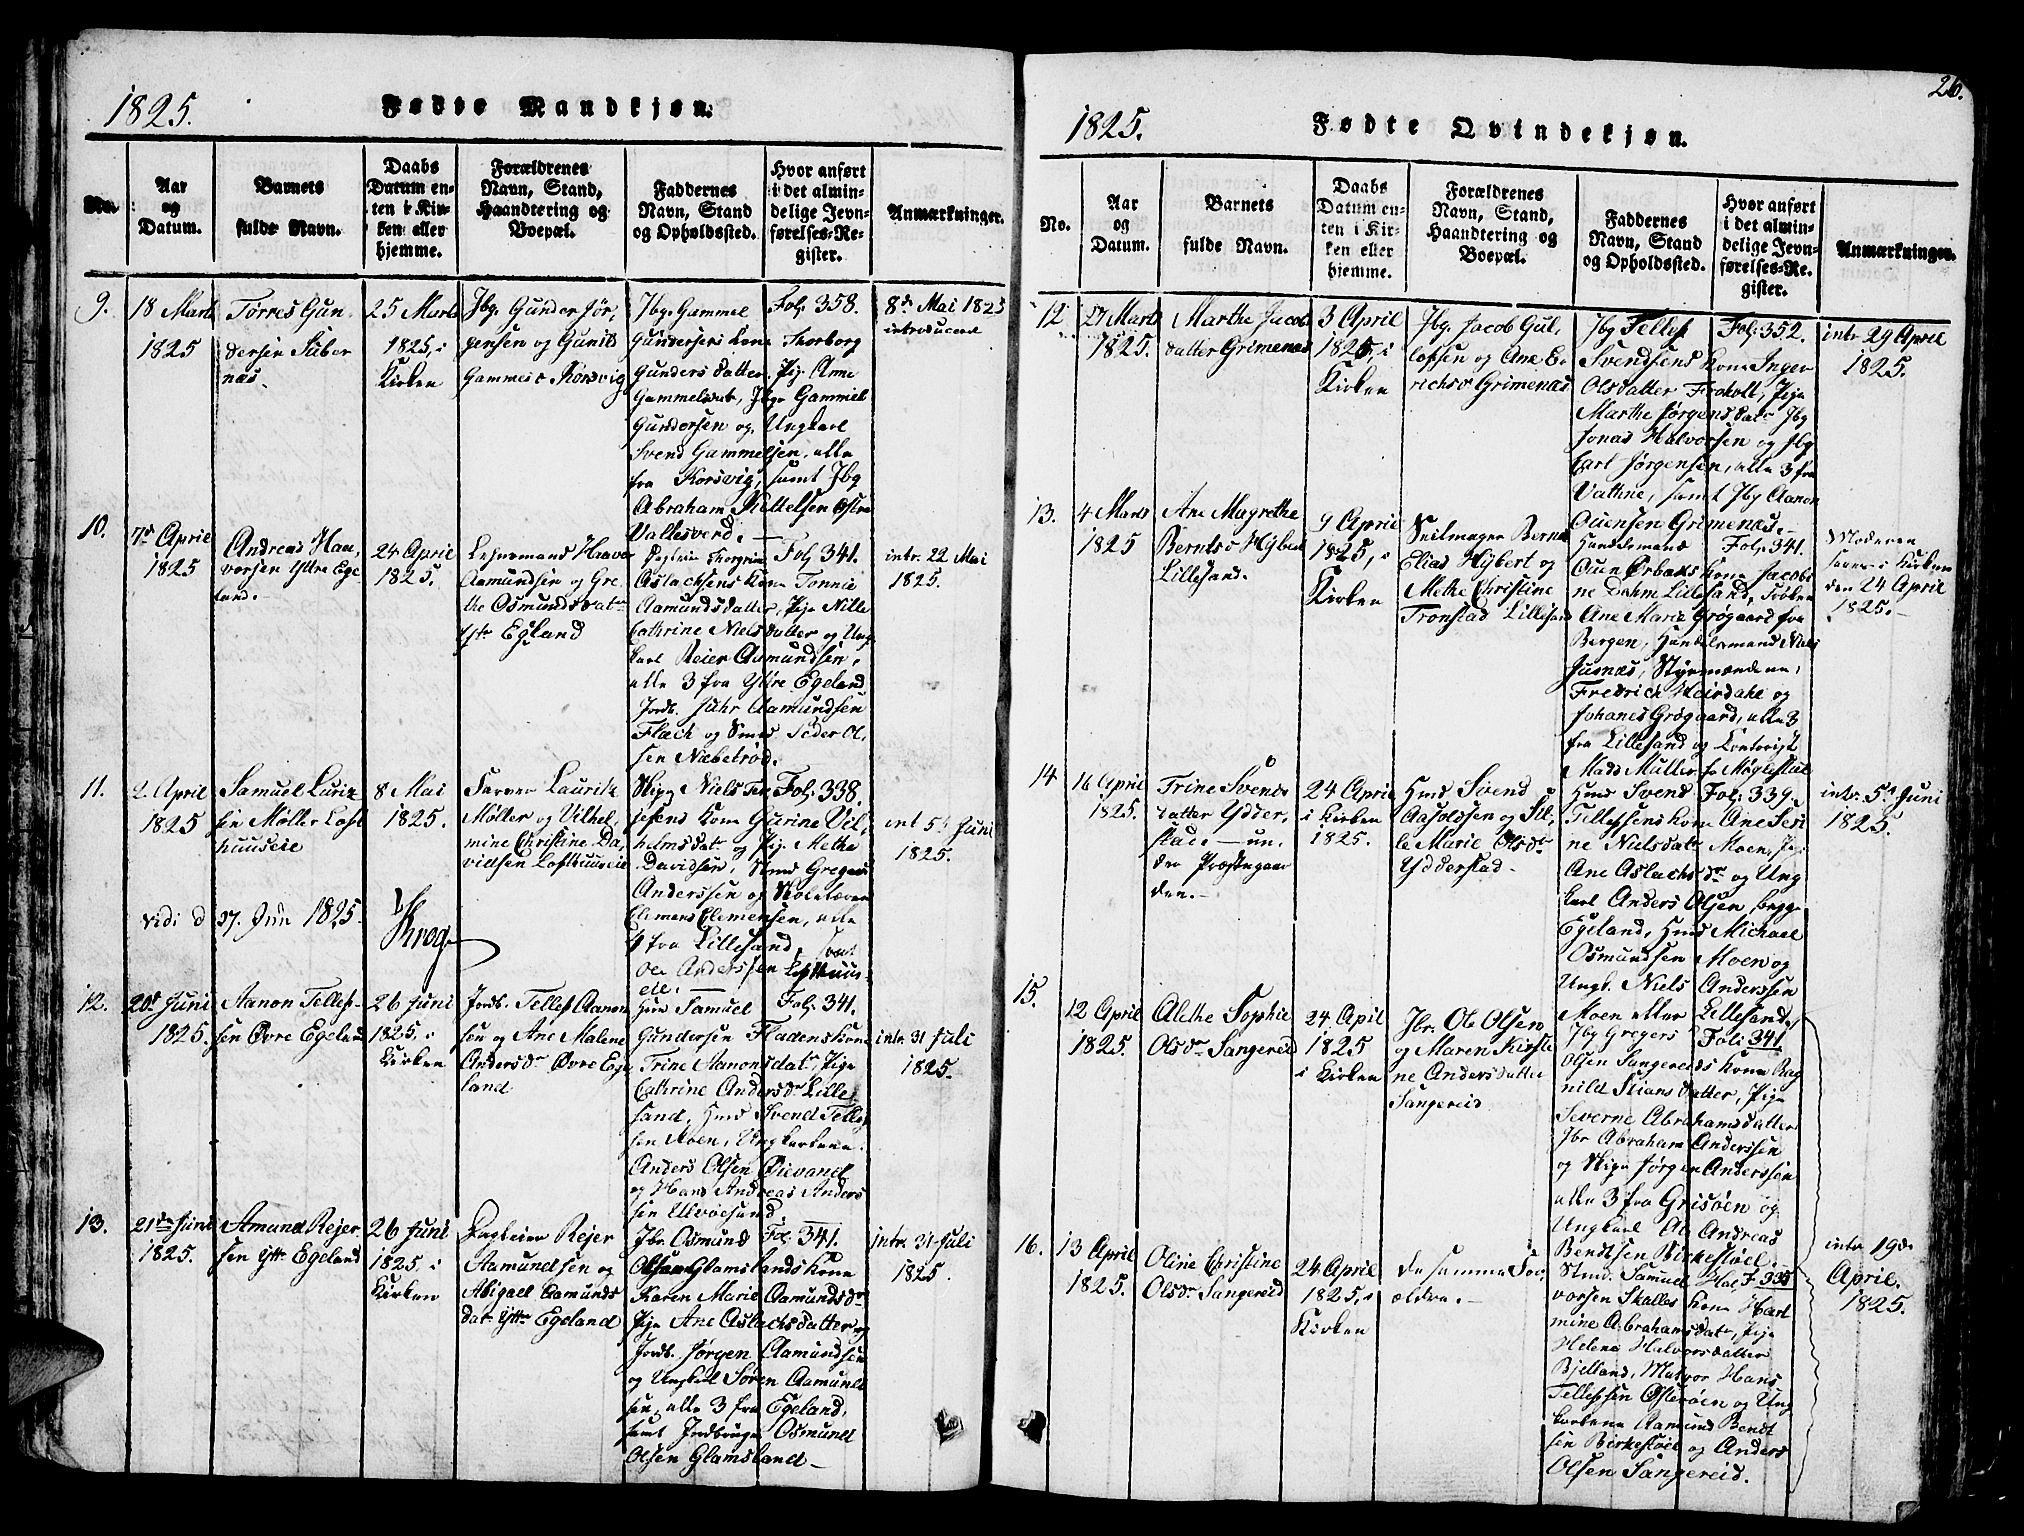 1825.
Fødte Mandkjøn.
No.
Aar og Datum.
Barnets fulde Navn.
Daabs Datum enten i Kirken eller hjemme.
Forældrenes Navn, Stand, Haandtering og Boepæl.
Faddernes Navn, Stand og Opholdssted.
Hvor anført i det almindelige Jevnførelses-Register.
Anmærkninger.
9.
18 Marts
1825
Torres Gun,
dersen
25 Marts
1825, i
Kirken
Jbg. Gunder Jør,
gensen og Gunild
Korsvig
Jbg. Gammel
Gundersens Kone Thorborg
Gunders datter, Pige Anne
Gammelsdat, Jbge Gammel
Gundersen og Ungkarl
Svend Gammelsen, alle
fra Korsvig, samt Jbg
Abraham Kittelsen Østre
Vallesverd. —
Fol. 358.
8de Mai 1825
introduceret
10.
7de April
1825
Andreas Haa,
vorsen Yttre Ege
land.
24 April
1825.
Leiermand Haavor
Aamundsen og Gre,
the Osmundsdatr
Ytr Egland
Thorgrim
Aslachsens Kone Tonnie
Aamundsdatter, Pige Nille
Cathrine Nielsdatter og Ung
karl Reier Aamundsen,
alle 3 fra Yttre Egeland
Jordb. Aamundsen
Flach og Smed Peder Ol,
sen Næbetrød.
Fol. 341.
intr. 22 Mai
1825.
11.
2 April
1825
Samuel Lurit
sen Møller Loft
huuseie
8 Mai
1825.
Farver Lauritz
Møller og Vilhel,
mine Christine Da,
vidsen Lofthuuseie
Skipp Niels
Kone Gurine Vil,
helmsdat og Pige Methe
Davidsen, Smed Gregers
Anderssen og
Clemens Clemensen, alle
4 fra Lillesand, samt
Ole Anderssen Lofthuus-
eie. —
Fol. 338.
int 5te Juni
1825.
Vidi d 27. Juni 1825.
Krog
12.
20de Juni
1825.
Aanon Telles-
sen Øvre Egeland
26 Juni
1825, i
Kirken
Jordb. Tellef Aanon
sen og Ane Malene
Andersdr Øvre Ege
land
Samuel
Gundersen Fladens Kone
Trine Aanonsdatr, Pige
Cathrine Andersdr Lille
sand, Hmd Svend Tellef
sen Moen, Ungkarlene
Anders Olsen
og Hans Andreas Anders
sen Ulvøesund
Fol. 341.
intr. 31 Juli
1825.
13.
21de Juni
1825.
Amund Rejer
sen Ytr Egeland
26 Juni
1825, i
Kirken
Rejer
Aamundsen og
Abigael Aamunds
datr Yttr Egeland
Jbr. Osmund
Olsen Glamslands Kone
Karen Marie Aamundsdr
Pige Ane Aslachsdatter og
Jordb. Jørgen Aamundsen
og Ungkarl Søren Aamund
sen, alle 3 fra Egeland,
samt Jordbruger Osmund
Olsen Glamsland —
Fol. 341.
intr. 31 Juli
1825.
26.
1825.
Fødte Qvindekjøn.
No.
Aar og Datum.
Barnets fulde Navn.
Daabs Datum enten i Kirken eller hjemme.
Forældrenes Navn, Stand, Haandtering og Boepæl.
Faddernes Navn, Stand og Opholdssted.
Hvor anført i det almindelige Jevnførelses-Register.
Anmærkninger.
12
27 Marts
1825.
Marthe Jacobs
datter Grimenæs
3 April
1825, i
Kirken
Jbg. Jacob Gul,
lofsen og Ane E,
richsdr Grimenæs
Jbg Tellef
Svendsens Kone Inger
Olsdatter Frokolt, Pige
Marthe Jørgensdatr Jbg
Jonas Halvorsen og Jbg
Carl Jørgensen, alle 3 fra
Vathne, samt Jbg Aanon
Ouensen Grimenæs. —
Fol. 352.
intr 29 April
1825.
13.
4 Marts
1825
Ane Magrethe
Berntsdr Hybert
Lillesand.
9 April
1825, i
Kirken
Seilmager Bernt
Elias Hybert og
Methe Christine
Tronstad Lillesand
Handelsmand
Ouen Ørbæks Kone Jacobi
ne Dahm Lillesand, Frøken
Ane Marie Grøgaard fra
Bergen, Handelsmand Niels
Jusnæs, Styrmændene
Fredrich Hairdahl og
Johanes Grøgaard, alle 3
fra Lillesand og Contorist
Mads Muller fr Møglestue
Fol. 341.
Moderen
i Kirken
den 24 April
1825. —
14
16 April
1825.
Trine Svends
datter Ydder,
stad — un,
der Præstegaar
den. —
24 April
i Kirken
1825.
Hmd Svend
Aasoldsen og Sil,
le Marie Olsdr
Ydderstad
Hmd Svend
Tellefsens Kone Ane Seri
ne Nielsdatr Moen, Pi
Ane Aslachsdr og Ung
karl Anders Olsen, begge
Egeland, Hmd Michael
Osmundsen Moen og
Ungk. Niels Anderssen
Moen eller Lillesand.
Fol: 339.
intr. 5te Juni
1825.
15.
12 April
1825.
Alethe Sophie
Olsdr Sangereid
24 April
1825
i Kirken
Jbr. Ole Olsen
og Maren Kirsti
ne Andersdatter
Sangereid
Jbg Gregers
Olsen Sangereids Kone Rag
nild Stiansdatter, Pige
Severne Abrahamsdatter
Jbr Abraham Anderssen
og Skipr Jørgen Anderssen
alle 3 fra Grisøen og
Ungkarl Ole Andreas
Bendtsen Birkestøel.
Fol: 341.
16.
13 April
1825.
Oline Christine
Olsdr Sangereid
24 April
1825, i
Kirken
de samme For,
ældre. —
Stmd. Samuel Hal,
vorsen Skalles Kone Hart
mine Abrahamsdatr, Pige
Helene Halvorsdatter
Bjelland, Matros Hans
Tellefsen Osterøen og Ung
karlene Aamund Bendt
sen Birkestøel og Anders
Olsen Sangereid.
F. 335
intr 19de
April.
1825.